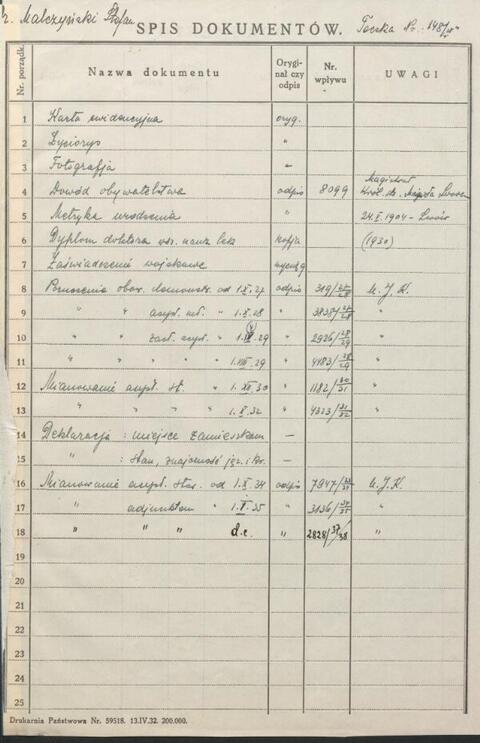 Dr. Małczyński Stefan SPIS DOKUMENTÓW. Teczka Nr.
Nr. porządk. Nazwa dokumentu Oryginał czy odpis Nr. wpływu UWAGI
1 Karta ewidencyjna oryg.
2 Życiorys "
3 Fotografja "
4 Dowód obywatelstwa odpis 8099 Magistrat Król. st. Miasta Lwowa
5 Metryka urodzenia " 24.I.1904 - Lwów
6 Dyplom doktora wsz. nauk lek kopja (1930)
7 Zaświadczenie wojskowe wyciąg
8 Poruczenie obow. demonstr. od 1.X.27 odpis 319/27/28 U.J.K.
9 " " asyst. mł. " 1.X.28 " 3838/27/28 "
10 " " zast. asyst. " 29 " 2926/28/29 "
11 " " " " 1.VIII.29 " 4483/28/29 "
12 Mianowanie asyst. st. " 1.XII.30 " 1182/30/31 "
13 " " " " 1.X.32 " 4323/31/32 "
14 Deklaracja : miejsce zamieszkan. —
15 " : stan, znajomość jęz. i kr. —
16 Mianowanie asyst. star. od 1.X.34 odpis 7947/33/34 U.J.K.
17 " adjunktem " 35 " 3136/34/35 "
18 " " " d.c. " 2828/37/38 "
19
20
21
22
23
24
25
Drukarnia Państwowa Nr. 59518. 13.IV.32. 200.000.